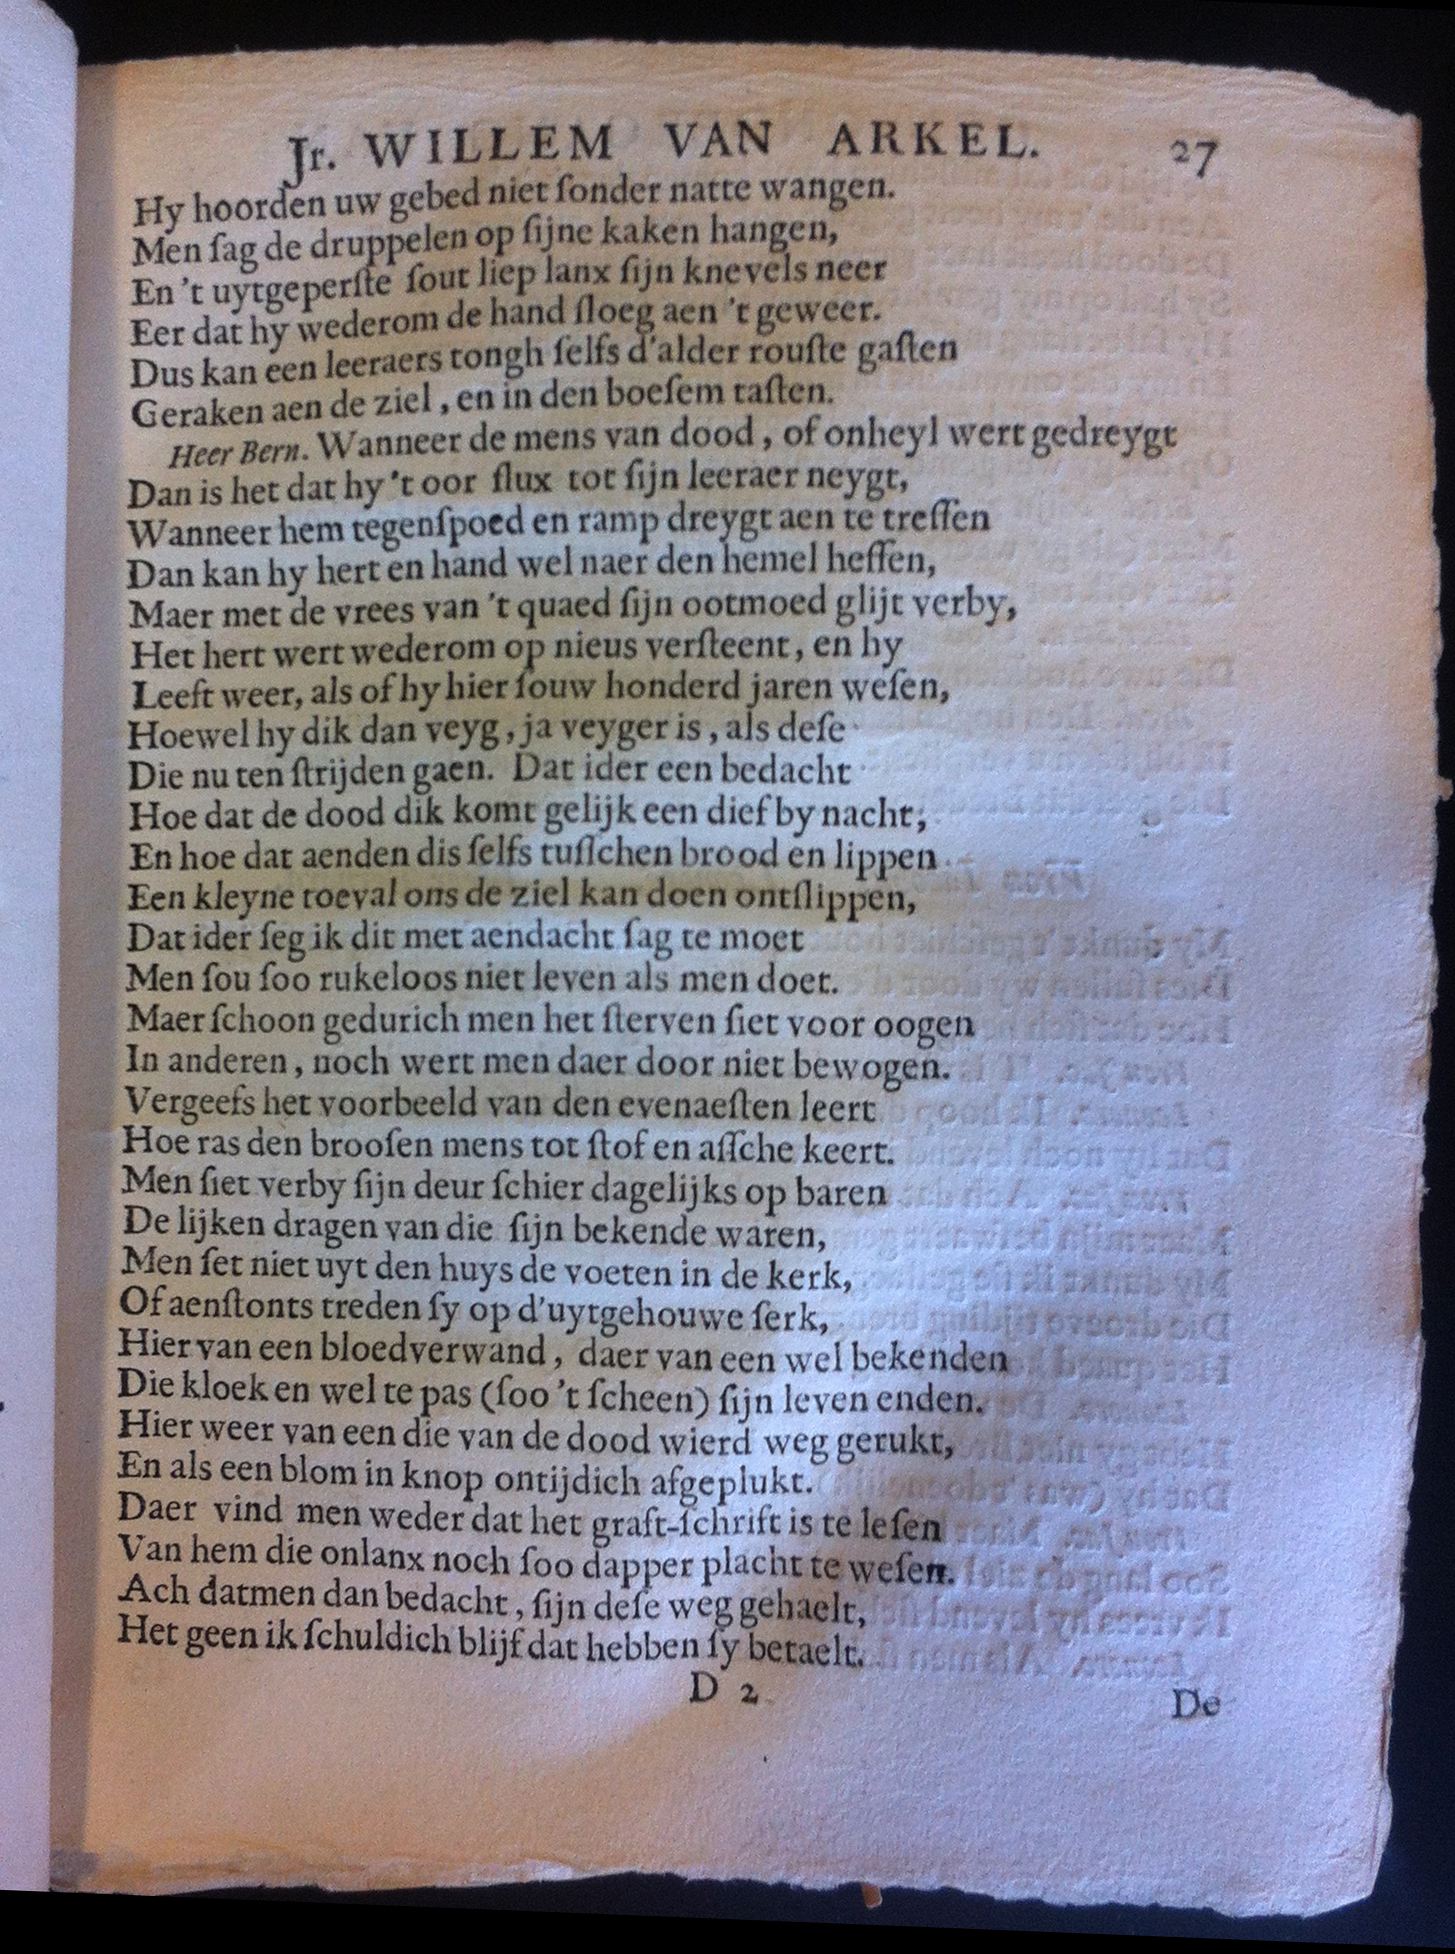 Jr. WILLEM VAN ARKEL. 27
Hy hoorden uw gebed niet ſonder natte wangen.
Men ſag de druppelen op ſijne kaken hangen,
En 't uytgeperſte ſout liep lanx ſijn knevels neer
Eer dat hy wederom de hand ſloeg aen 't geweer.
Dus kan een leeraers tongh ſelfs d'alder rouſte gaſten
Geraken aen de ziel, en in den boeſem taſten.
Heer Bern. Wanneer de mens van dood, of onheyl wert gedreygt
Dan is het dat hy 't oor flux tot ſijn leeraer neygt,
Wanneer hem tegenſpoed en ramp dreygt aen te treffen
Dan kan hy hert en hand wel naer den hemel heffen,
Maer met de vrees van 't quaed ſijn ootmoed glijt verby,
Het hert wert wederom op nieus verſteent, en hy
Leeft weer, als of hy hier ſouw honderd jaren weſen,
Hoewel hy dik dan veyg, ja veyger is, als deſe
Die nu ten ſtrijden gaen. Dat ider een bedacht
Hoe dat de dood dik komt gelijk een dief by nacht;
En hoe dat aenden dis ſelfs tuſſchen brood en lippen
Een kleyne toeval ons de ziel kan doen ontſlippen,
Dat ider ſeg ik dit met aendacht ſag te moet
Men ſou ſoo rukeloos niet leven als men doet.
Maer ſchoon gedurich men het ſterven ſiet voor oogen
In anderen, noch wert men daer door niet bewogen.
Vergeefs het voorbeeld van den evenaeſten leert
Hoe ras den brooſen mens tot ſtof en aſſche keert.
Men ſiet verby ſijn deur ſchier dagelijks op baren
De lijken dragen van die ſijn bekende waren,
Men ſet niet uyt den huys de voeten in de kerk,
Of aenſtonts treden ſy op d'uytgehouwe ſerk,
Hier van een bloedverwand, daer van een wel bekenden
Die kloek en wel te pas (ſoo 't ſcheen) ſijn leven enden.
Hier weer van een die van de dood wierd weg gerukt,
En als een blom in knop ontijdich afgeplukt.
Daer vind men weder dat het graft-ſchrift is te leſen
Van hem die onlanx noch ſoo dapper placht te weſen.
Ach datmen dan bedacht, ſijn deſe weg gehaelt,
Het geen ik ſchuldich blijf dat hebben ſy betaelt.
D 2
De